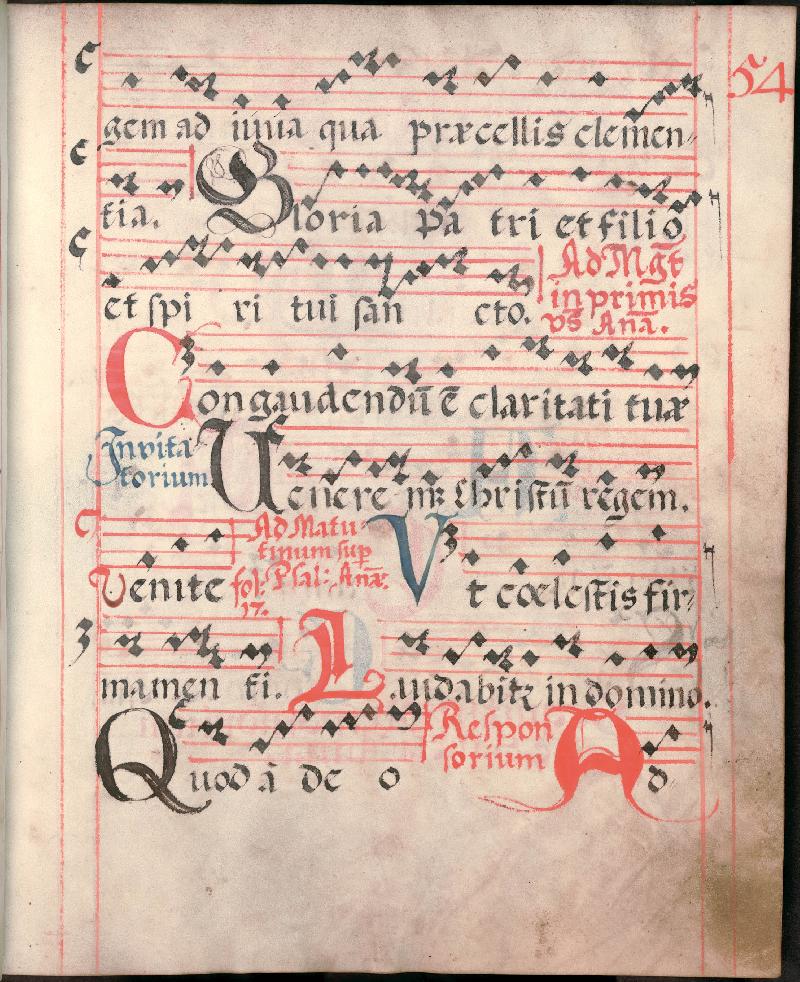 54
gem ad imia qua præcellis clemen-
tia. Gloria Pa tri et filiō
et spi ri tui san cto. Ad Mḡt
in primis
vs̄ Anā.
Congaudendū ē claritati tuæ
Invita
torium. Venere
Christū
regem.
Venite Ad Matu
tinum sup
fol: Psal: Anā:
17.
Vt cœlestis fir-
mamen ti. Laudabitꝛ in domino.
Quod ā de o Respon
sorium Ad